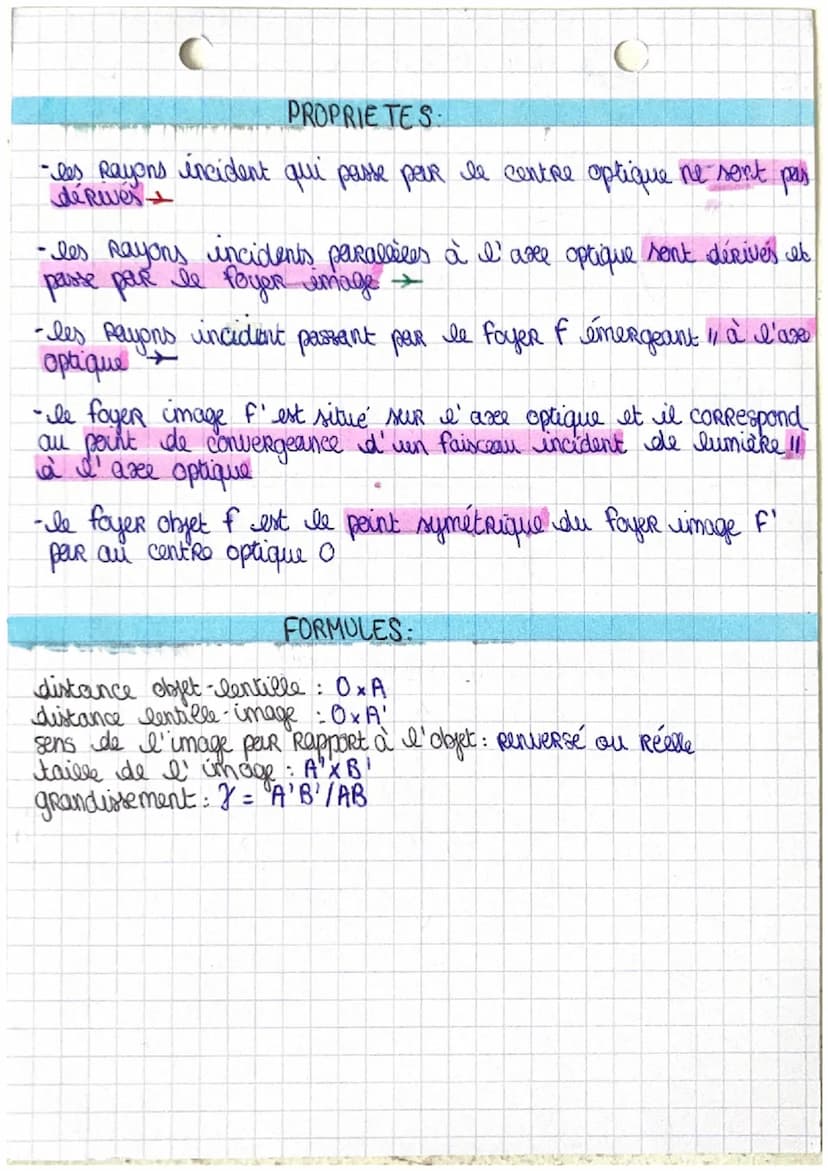 PROPRIETES:
-les rayons incident qui passe par le centre optique ne sont pas
dérivés →
-les rayons incidents parallèles à l'axe optique sont dérivés et
passe par le foyer image →
-les rayons incident passant par le foyer F émergeant // à l'axe
optique →
-le foyer image F' est situé sur l'axe optique et il correspond
au point de convergeance d'un faisceau incident de lumière //
à l'axe optique
-le foyer objet F est le point symétrique du foyer image F'
par au centre optique O
FORMULES:
distance objet-lentille : O×A
distance lentille-image : O×A'
sens de l'image par rapport à l'objet : renversé ou réelle
taille de l'image : A'×B'
grandissement : γ = A'B'/AB